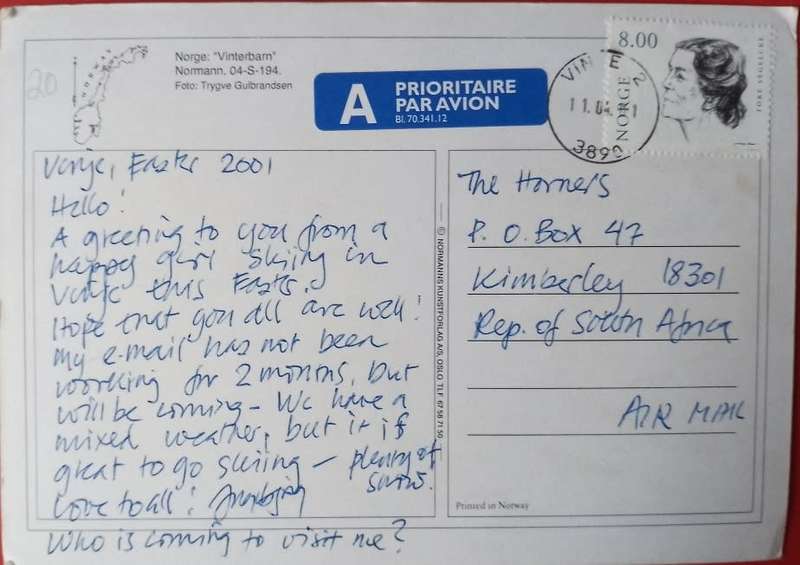 20
NORWAY
Norge: "Vinterbarn"
Normann. 04-S-194.
Foto: Trygve Gulbrandsen
A PRIORITAIRE
PAR AVION
Bl. 70.341.12
8.00
NORGE
TORE SEGELCKE
VIN E 2
11.04. 1
3890
, Easter 2001
Hello!
A greeting to you from a
happy girl skiing in
this Easter.
Hope that you all are well!
my e-mail has not been
working for 2 months, but
will be coming - We have a
mixed weather, but it is
great to go skiing - plenty of
snow.
Love to all!
Who is coming to visit me?
© NORMANNS KUNSTFORLAG A/S, OSLO. TLF. 67 58 71 50
The Horners
P. O. Box 47
Kimberley 18301
Rep. of South Africa
AIR MAIL
Printed in Norway